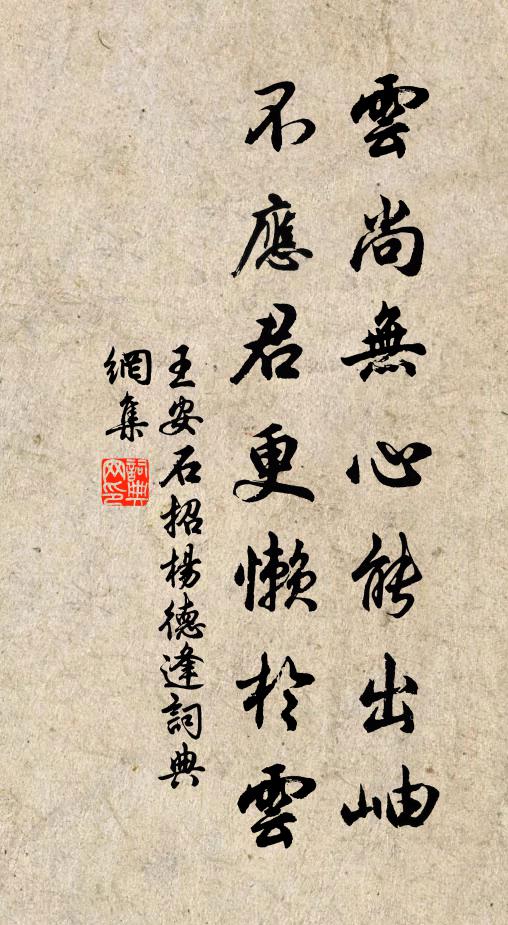 雲尚無心能出岫
不應君更懶於雲
王安石招楊德逢詞典
網集
詞典
网印